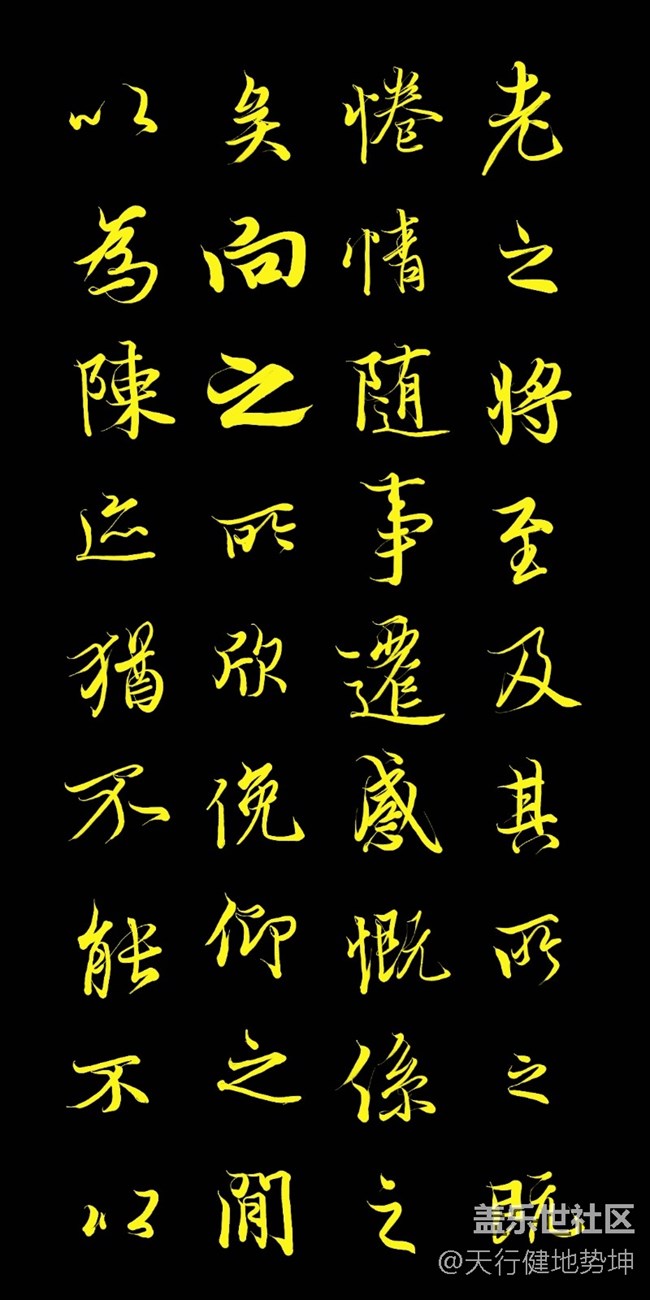 老之將至及其所之既
惓情隨事遷感慨係之
矣向之所欣俛仰之閒
以為陳迹猶不能不以
盖乐世社区
@天行健地势坤